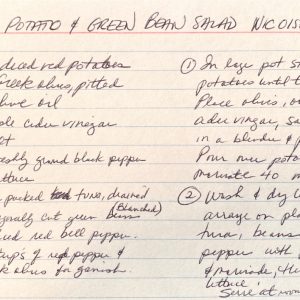 POTATO & GREEN BEAN SALAD NICOIS
diced red potatoes
Greek olives, pitted
olive oil
cider vinegar
freshly ground black pepper
lettuce
packed tuna, drained
diagonally cut green beans (Blanched)
red bell pepper
strips of red pepper &
olives for garnish
① In large pot st
potatoes until t
Place olives, o
cider vinegar, sa
in a blender & p
Pour over potato
marinate 40 m
② Wash & dry l
arrange on pla
tuna, beans
pepper with
& marinade, th
lettuce.
Serve at room